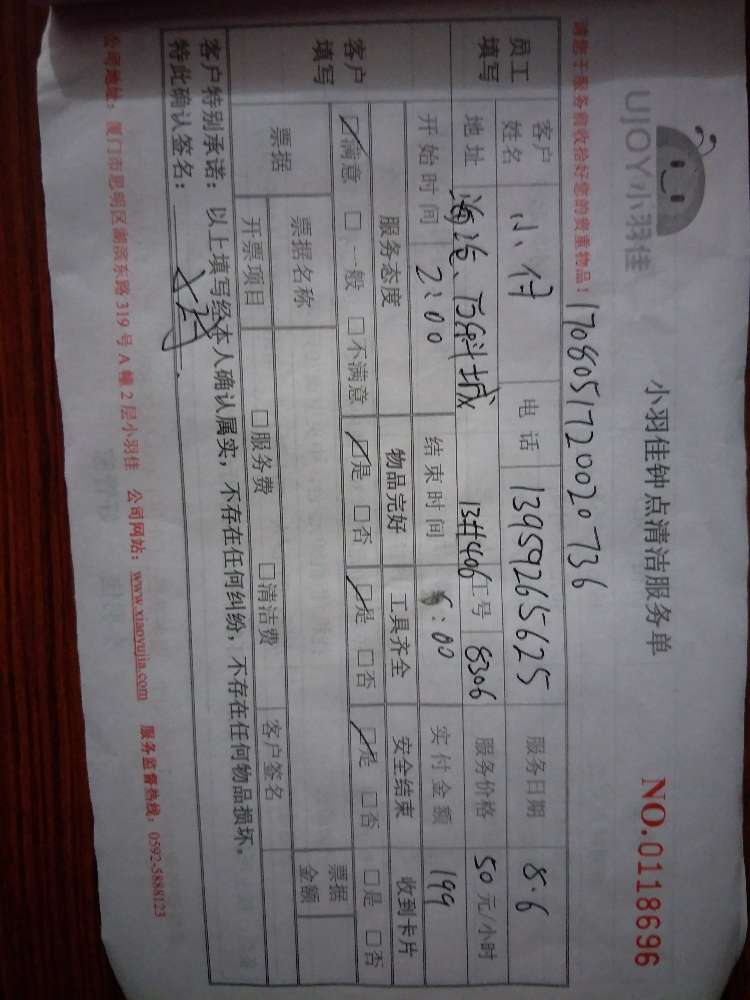 UJOY小羽佳
小羽佳钟点清洁服务单
NO.0118696
请您于服务前收拾好您的贵重物品！
1708051720020736
员工填写
客户姓名 小付 电话 13959265625 服务日期 8.6
地址 海沧、万科城 13#406 工号 8306 服务价格 50元/小时
开始时间 2:00 结束时间 6:00 实付金额 199
客户填写
服务态度 物品完好 工具齐全 安全结束 收到卡片
☑满意 □一般 □不满意 ☑是 □否 ☑是 □否 ☑是 □否 □是 □否
票据 票据名称 票据金额
开票项目 □服务费 □清洁费 客户签名
客户特别承诺：以上填写经本人确认属实，不存在任何纠纷，不存在任何物品损坏。
特此确认签名：
公司地址：厦门市思明区湖滨东路319号A幢2层小羽佳 公司网站：www.xiaoyujia.com 服务监督热线：0592-5888123